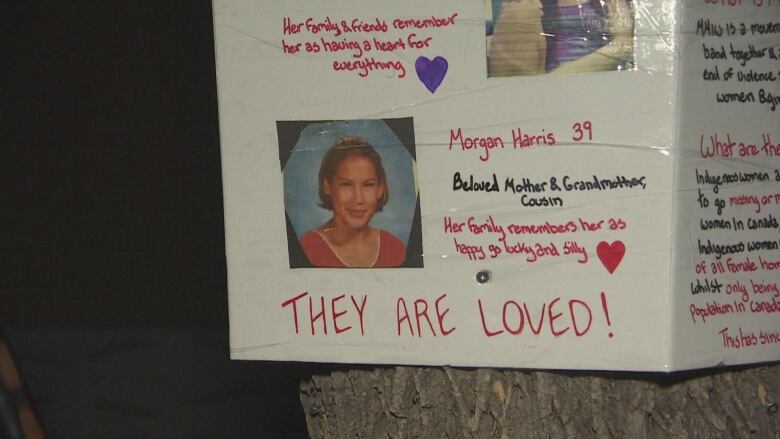 Her family & friends remember
her as having a heart for
everything
Morgan Harris 39
Beloved Mother & Grandmother,
Cousin
Her family remembers her as
happy go lucky and silly
THEY ARE LOVED!
MMIW is a
band together &
end of violence
women &
What are the
Indigenous women
to go missing or
women in Canada
Indigenous women
of all female
whilst only being
population in Canada
This has